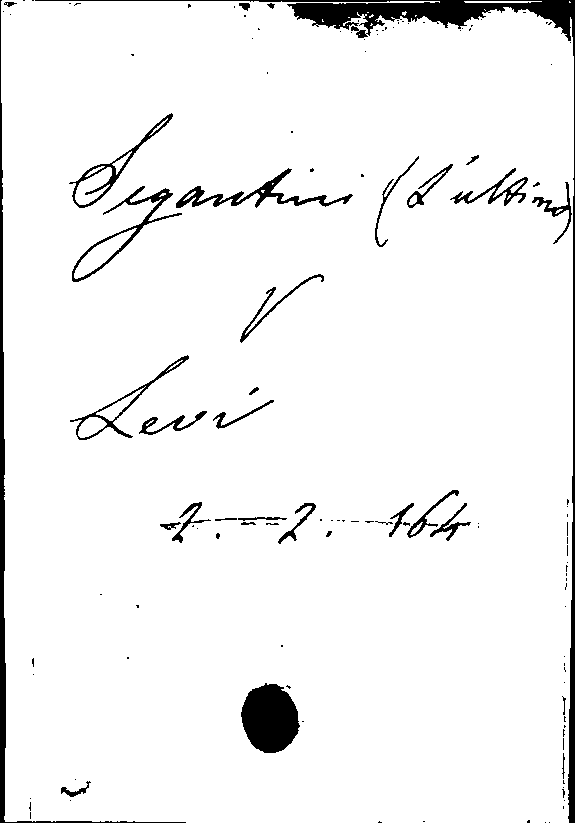 Segantini (L'ultimo)
V
Levi
2. 2. 164